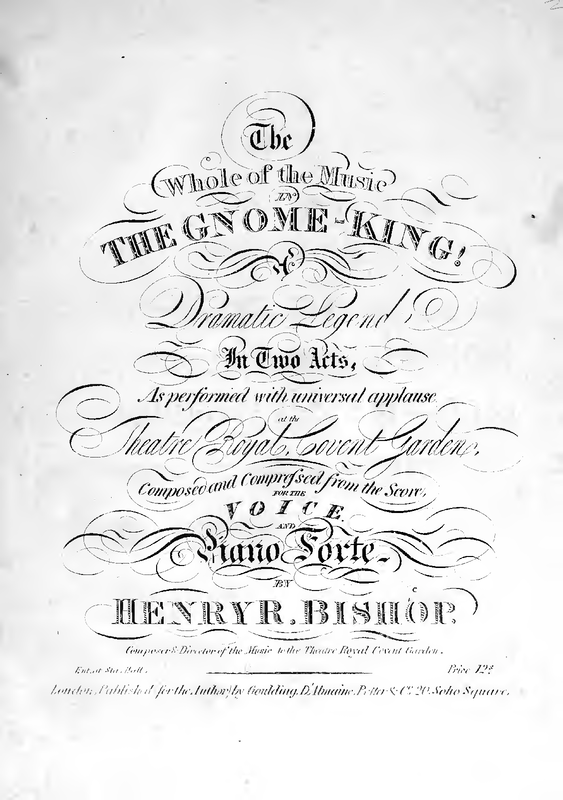 The
Whole of the Music
IN
THE GNOME-KING!
A
Dramatic Legend,
In Two Acts,
As performed with universal applause
at the
Theatre Royal, Covent Garden,
Composed and Compreſsed from the Score,
FOR THE
VOICE
AND
Piano Forte
BY
HENRY R. BISHOP.
Composer & Director of the Music to the Theatre Royal Covent Garden.
Ent. at Sta. Hall.
Price 12s.
London, Published for the Author, by Goulding, D'Almaine, Potter & Co. 20, Soho Square.